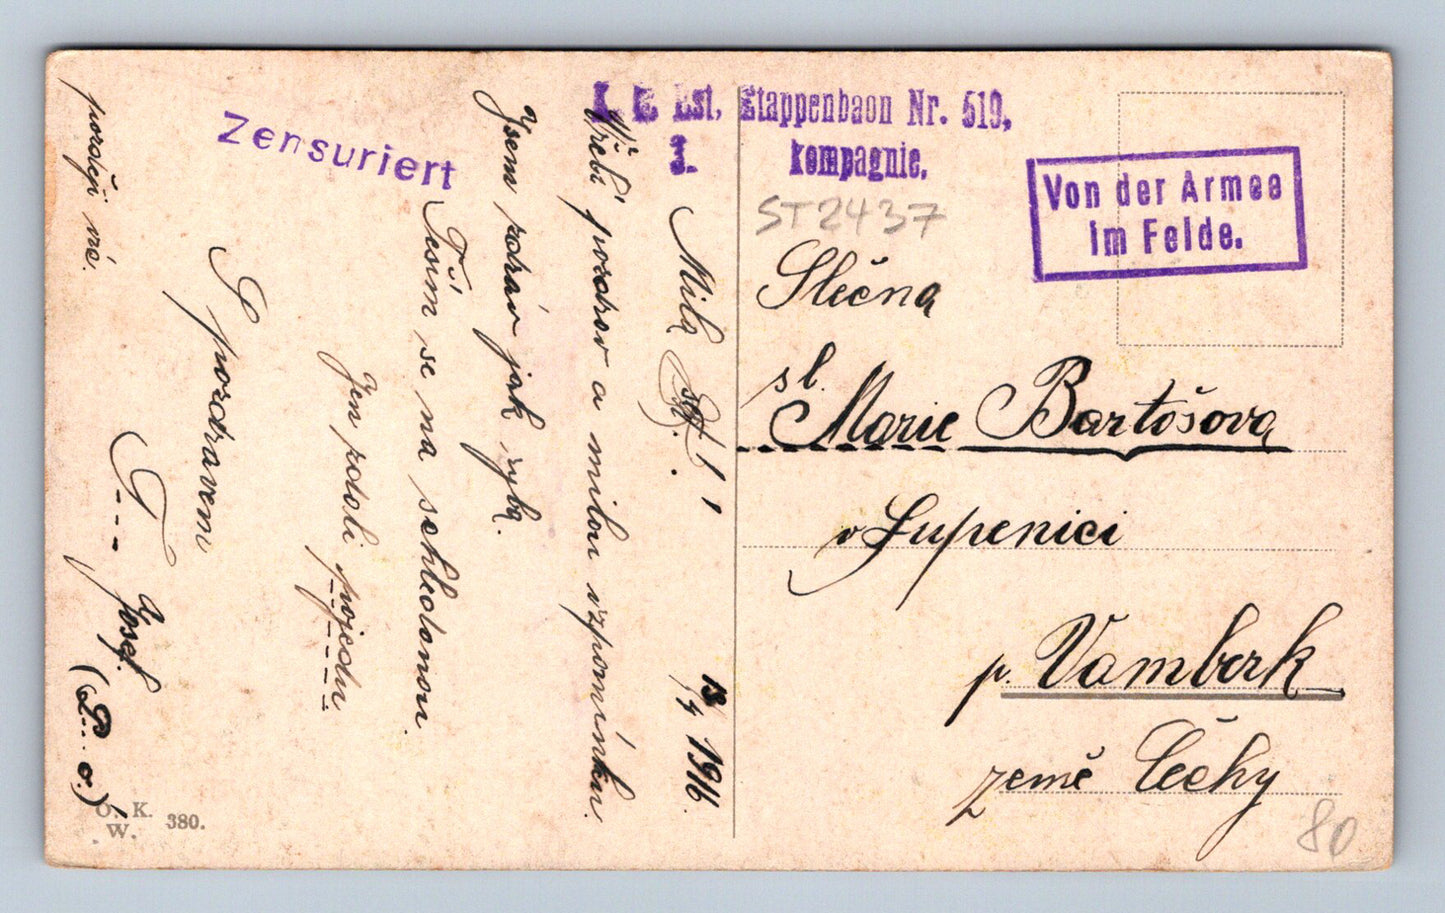 Zensuriert
K. K. Lst. Etappenbaon Nr. 519,
3. kompagnie.
Von der Armee
im Felde.
ST2437
Milá
13/4 1916.
Vřelý pozdrav a milou vzpomínku.
Jsem zdráv jak ryba.
Těším se na schledanou
Jen zdali pojedu
S pozdravem
Josef.
pozděj víc.
Slečna
sl. Marie Bartošova
v Lupenici
p. Vamberk
země Čechy
80
O. K.
W. 380.